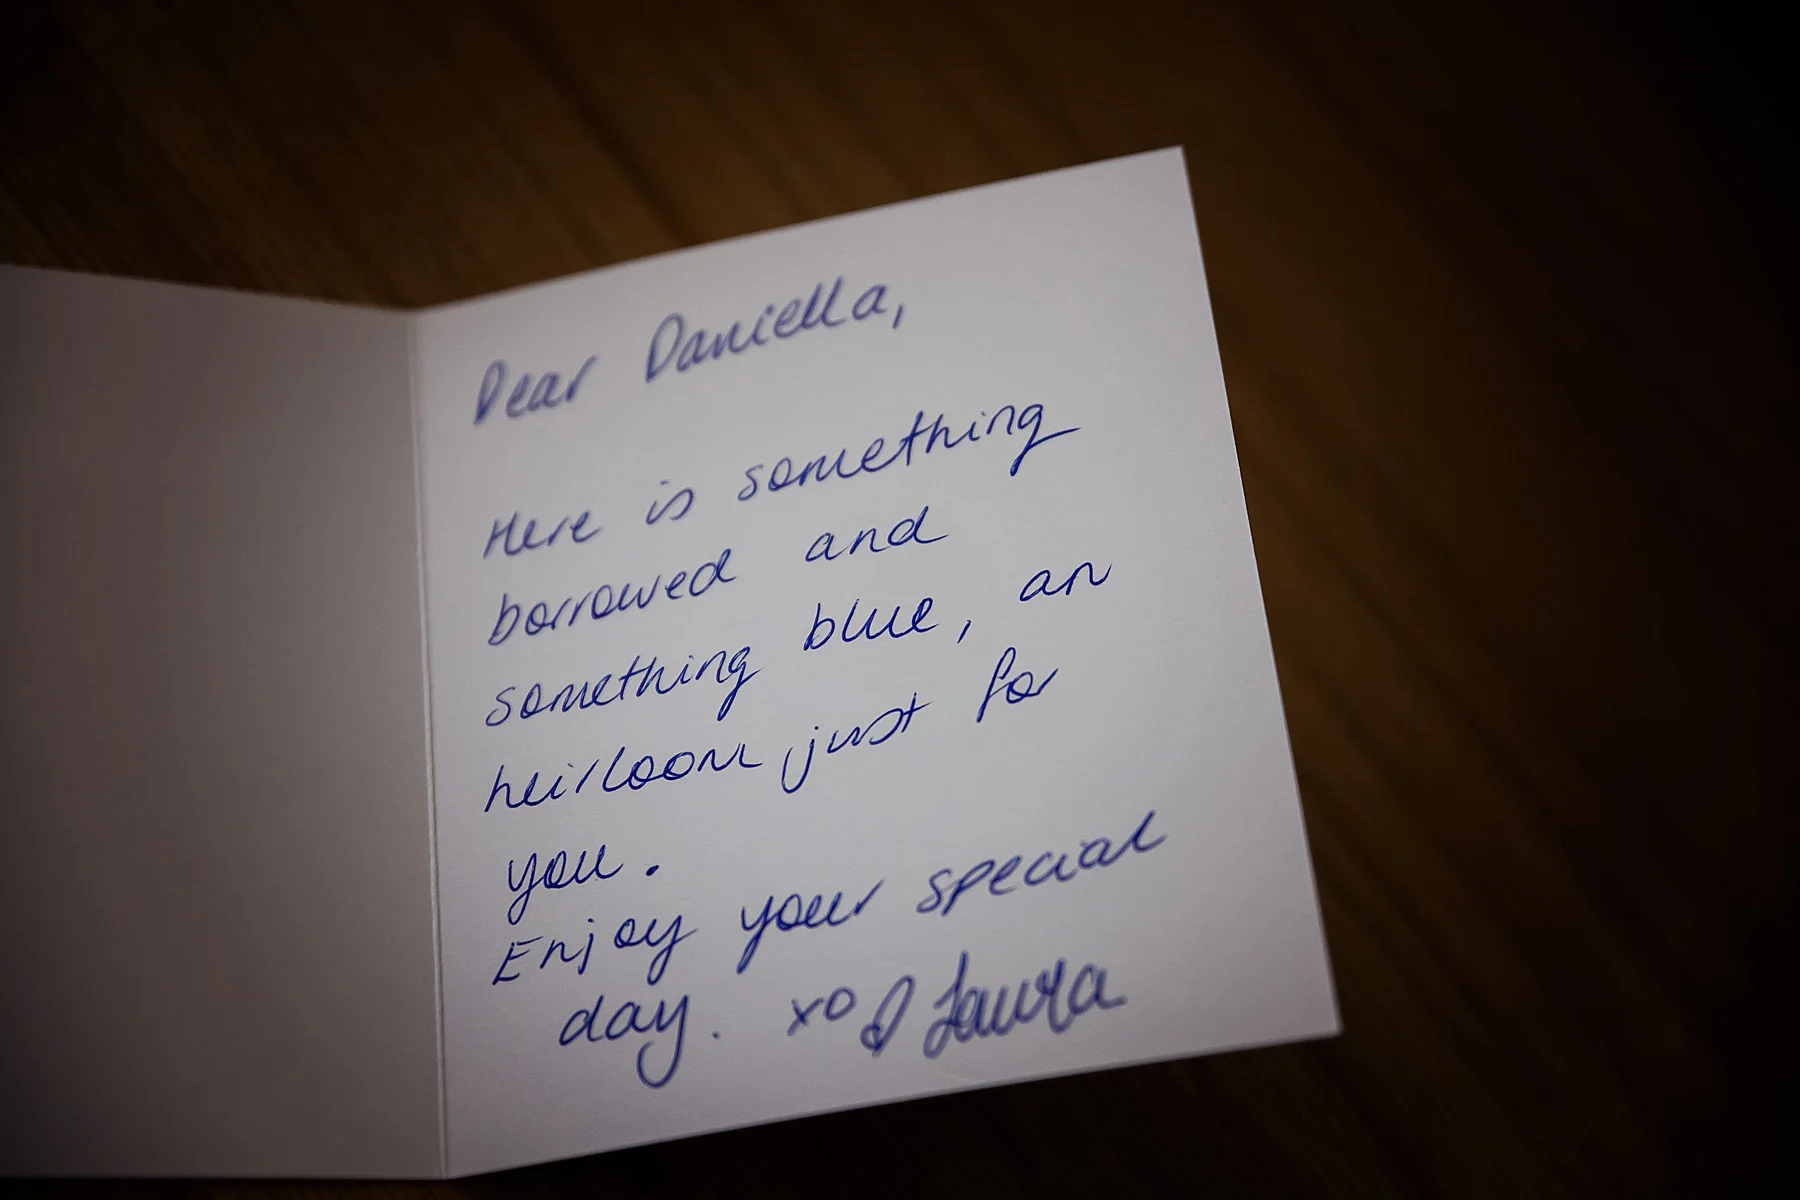 Dear Daniella,
Here is something
borrowed and
something blue, an
heirloom just for
you.
Enjoy your special
day. xo Laura